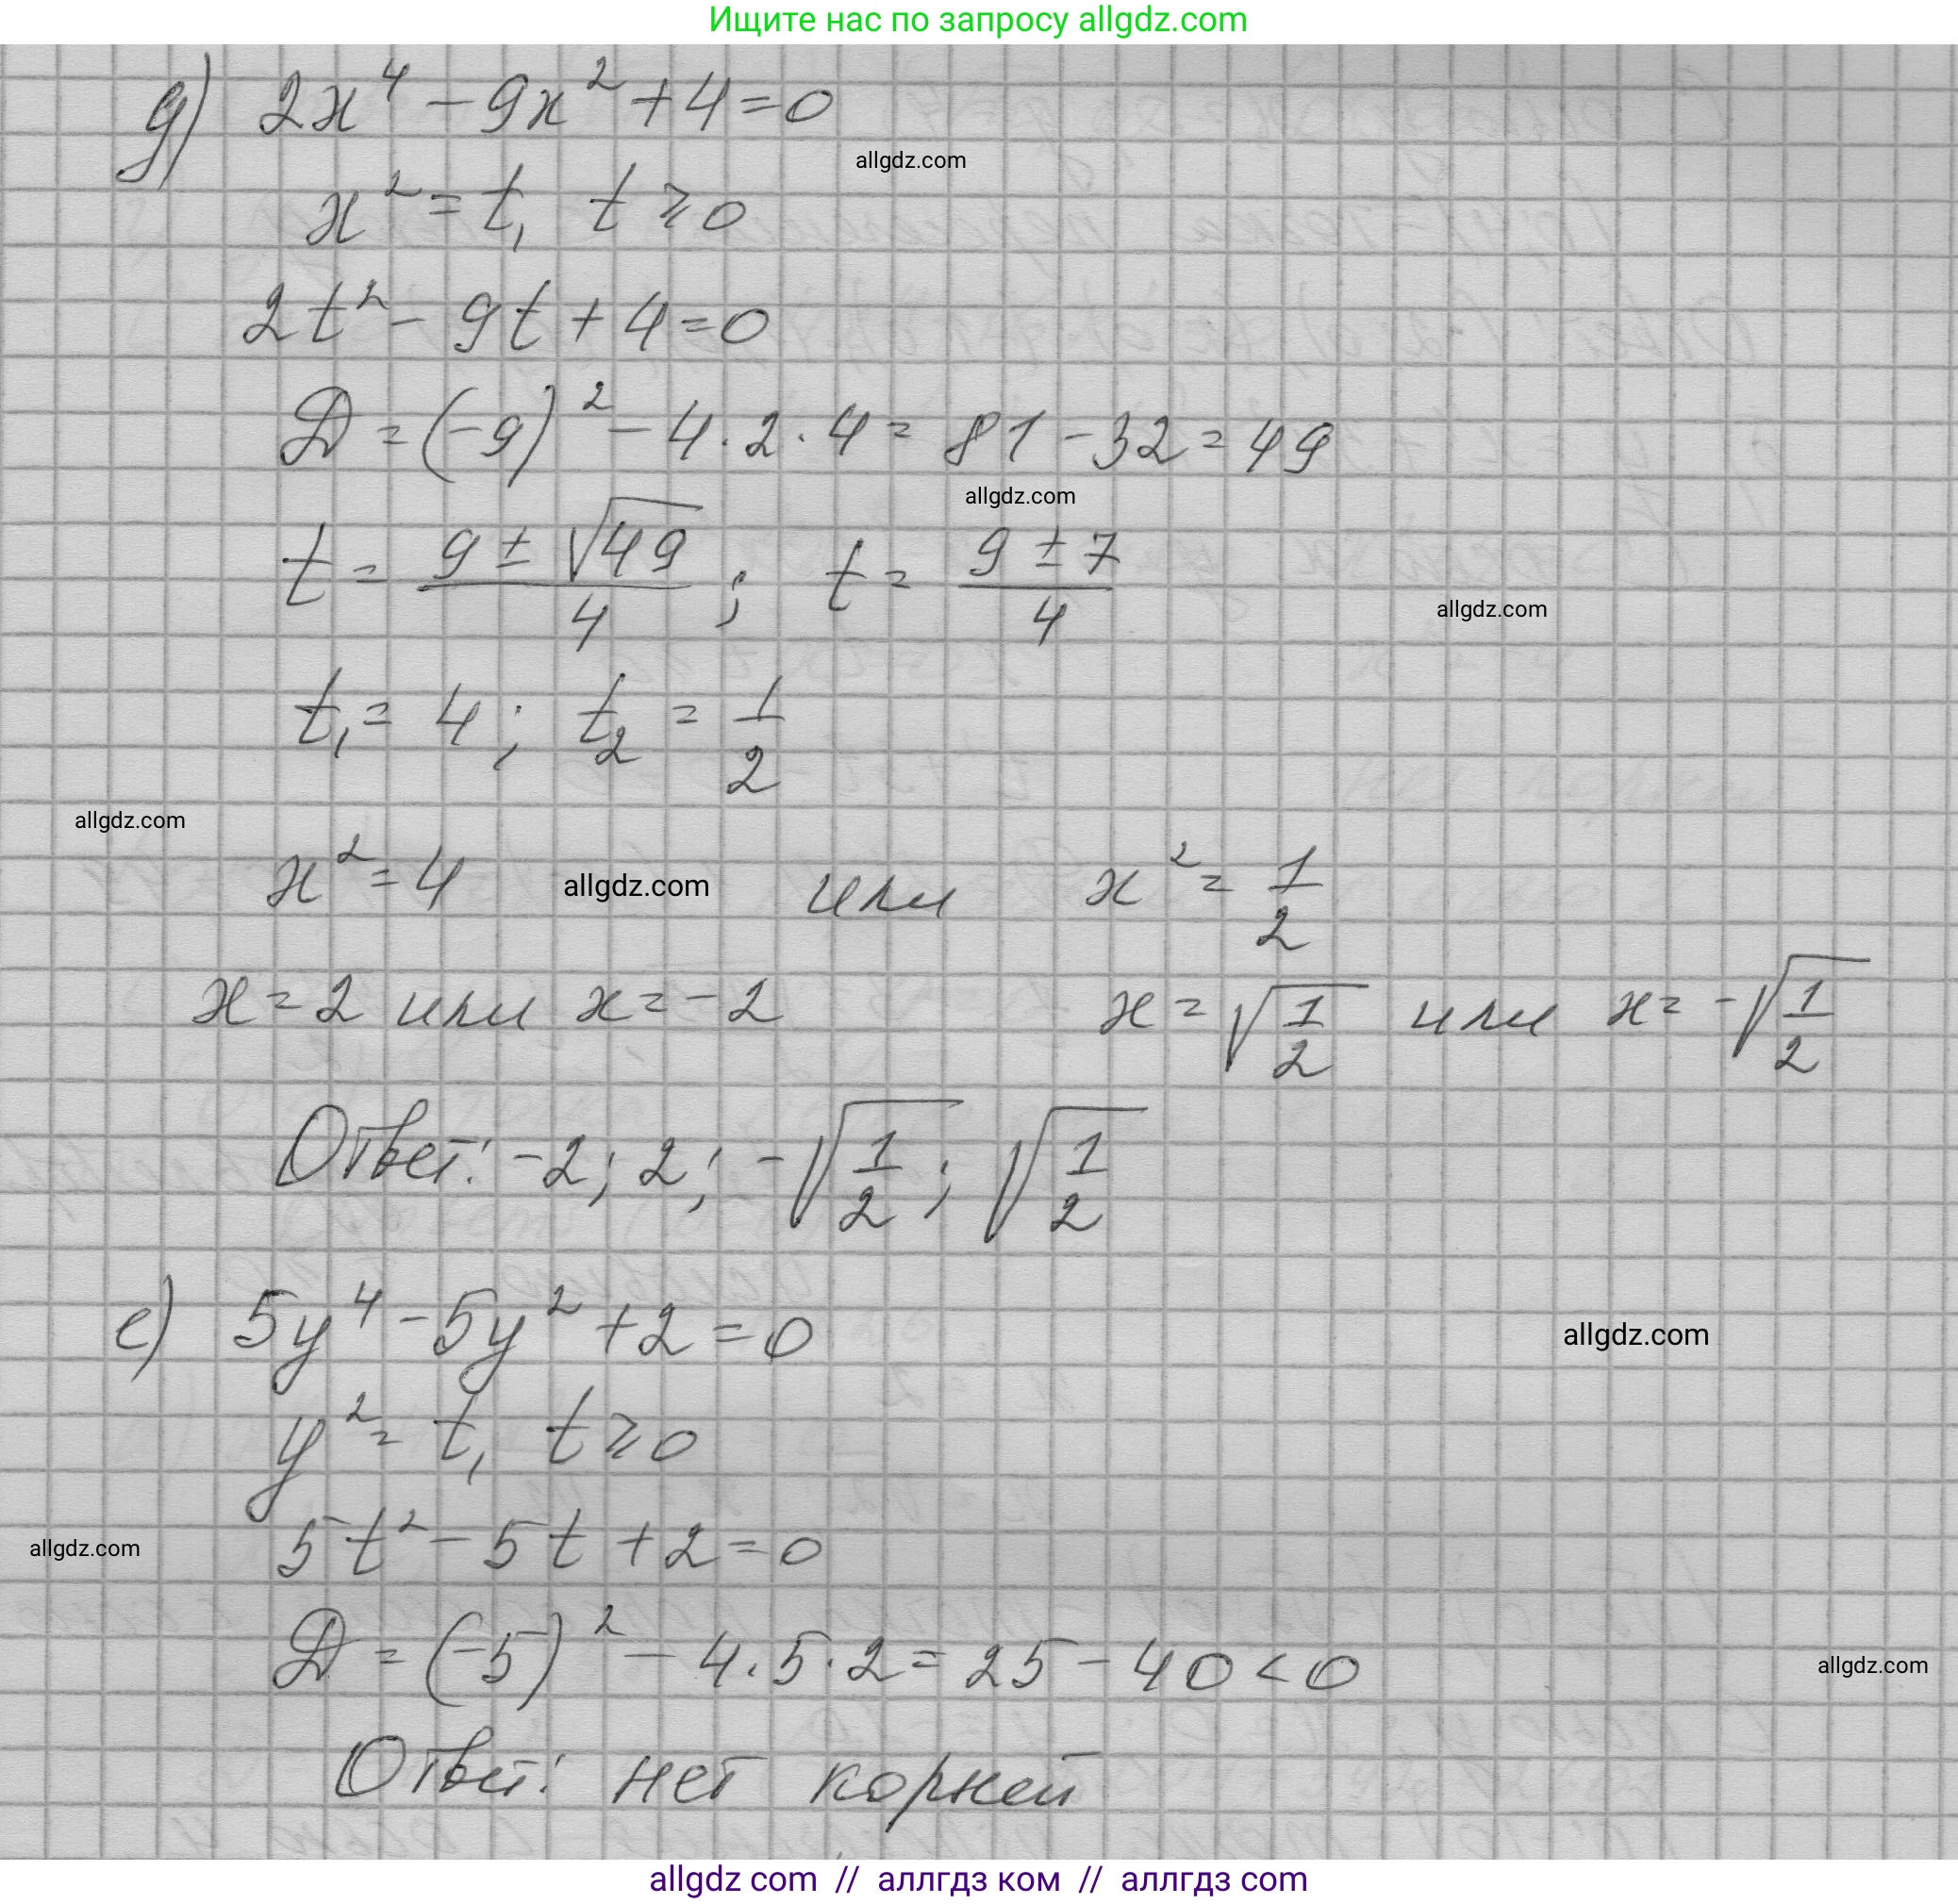 Ищите нас по запросу allgdz.com
д) 2x⁴ − 9x² + 4 = 0
allgdz.com
x² = t, t ⩾ 0
2t² − 9t + 4 = 0
D = (−9)² − 4 · 2 · 4 = 81 − 32 = 49
allgdz.com
t = (9 ± √49)/4 ; t = (9 ± 7)/4
allgdz.com
t₁ = 4 ; t₂ = 1/2
allgdz.com
x² = 4 allgdz.com или x² = 1/2
x = 2 или x = −2 x = √(1/2) или x = −√(1/2)
Ответ: −2; 2; −√(1/2); √(1/2)
е) 5y⁴ − 5y² + 2 = 0
allgdz.com
y² = t, t ⩾ 0
5t² − 5t + 2 = 0
allgdz.com
D = (−5)² − 4 · 5 · 2 = 25 − 40 < 0
allgdz.com
Ответ: нет корней
allgdz com // аллгдз ком // аллгдз com